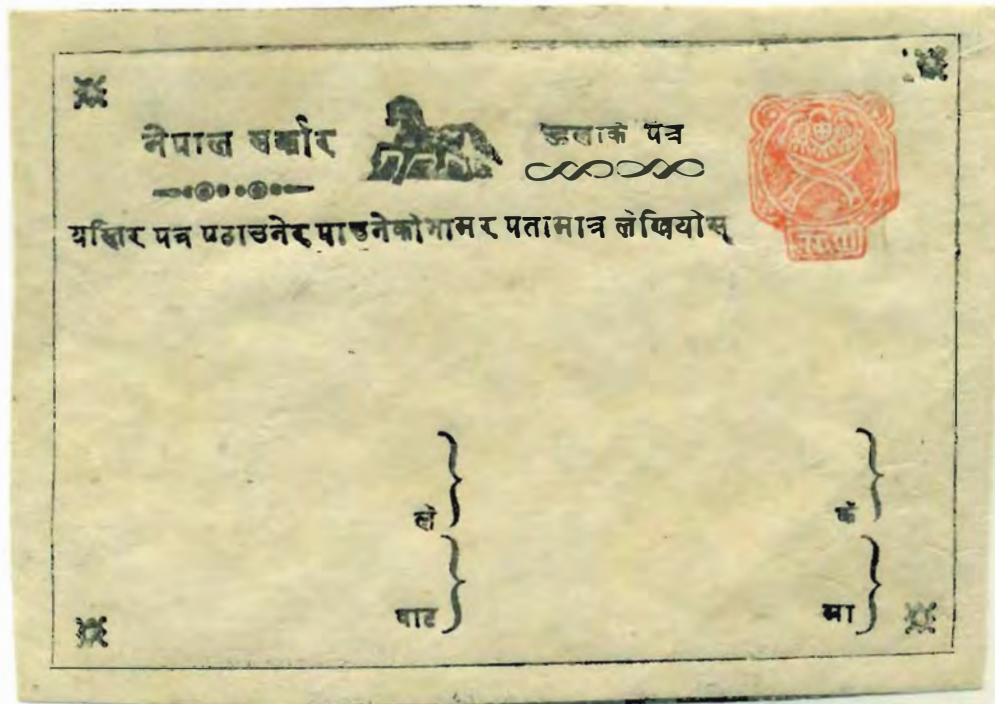 नेपाल सर्कार हुलाक पत्र
यद्दित्तिर पत्र पठाउनेर पाउनेको नाम र पता मात्र लेखियोस्
ले
के
बाट
मा